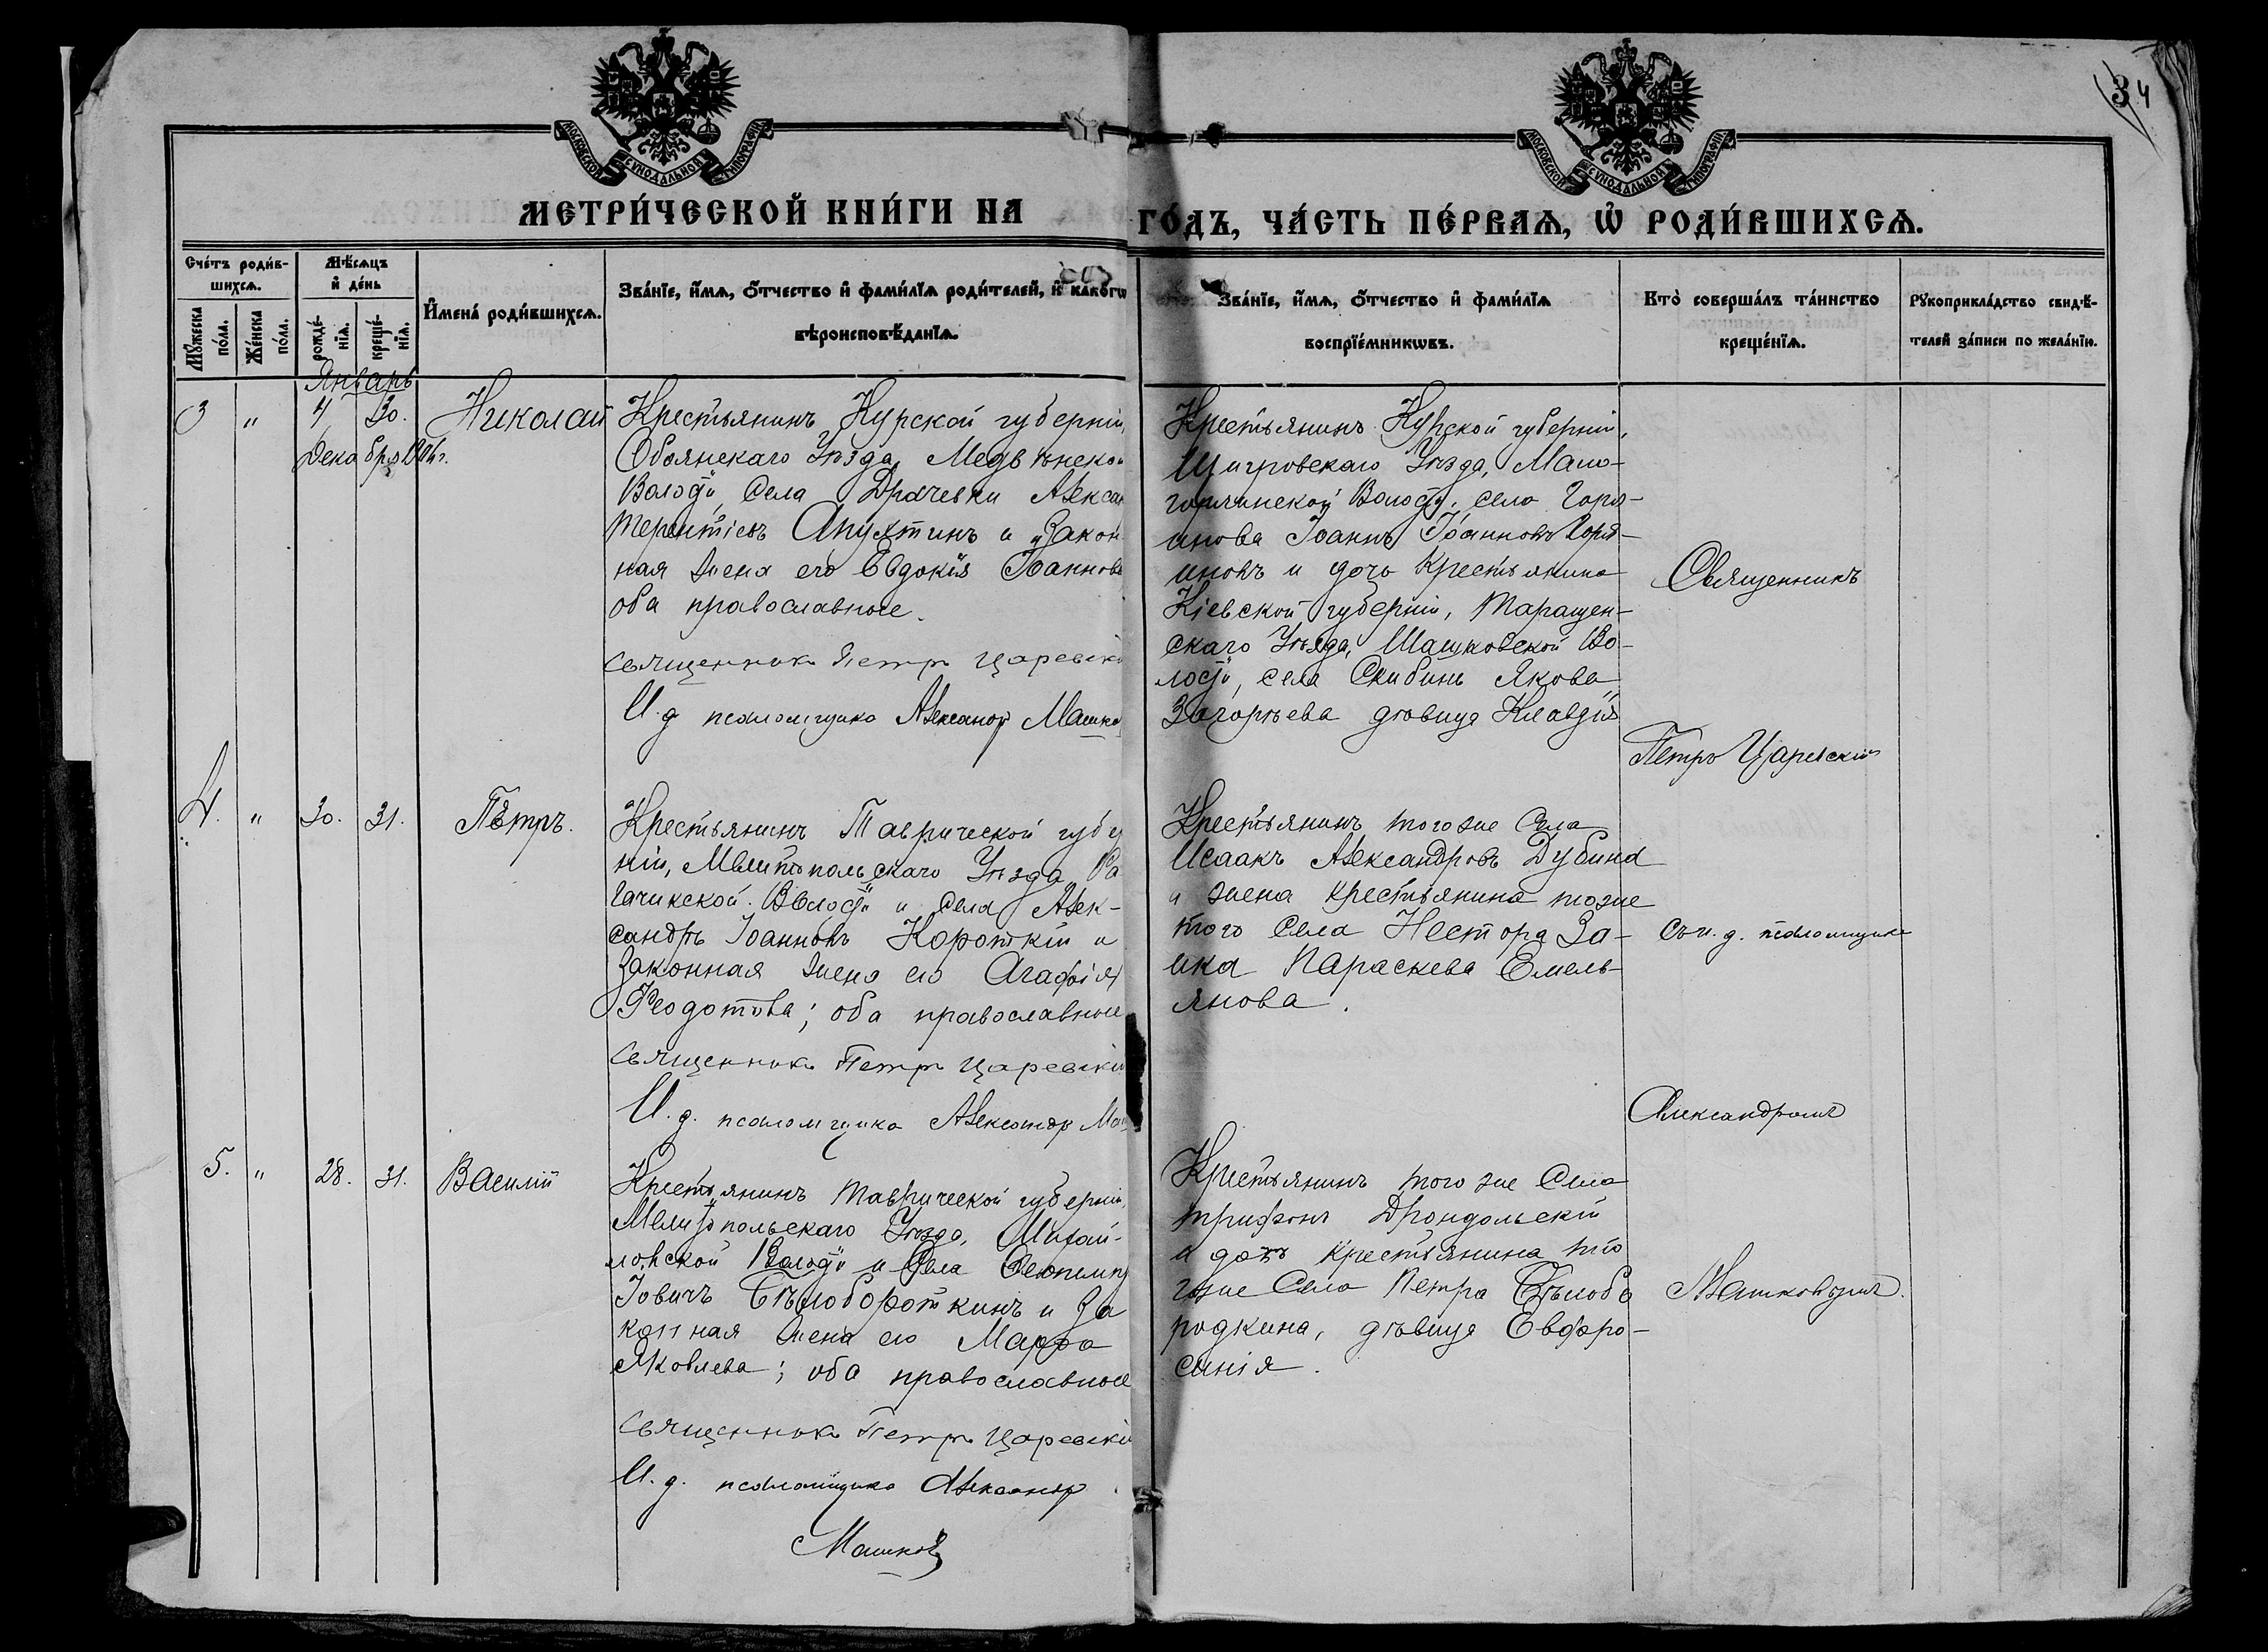 34
МОСКОВСКОЙ СѴНОДАЛЬНОЙ ТИПОГРАФІИ
МОСКОВСКОЙ СѴНОДАЛЬНОЙ ТИПОГРАФІИ
МЕТРИ́ЧЕСКОЙ КНИ́ГИ НА
ГО́ДЪ, ЧА́СТЬ ПЕ́РВАѦ, Ѡ҆ РОДИ́ВШИХСѦ.
Сче́тъ роди́в-
шихсѧ.
Мꙋ́жеска по́ла.
Же́нска по́ла.
Мѣ́сѧцъ
и҆ де́нь
рожде́-
нїѧ.
креще́-
нїѧ.
И҆мена̀ роди́вшихсѧ.
Зва́нїе, и҆́мѧ, ѻ҆́тчество и҆ фами́лїѧ роди́телей, и҆ како́гѡ
вѣроисповѣ́данїѧ.
Зва́нїе, и҆́мѧ, ѻ҆́тчество и҆ фами́лїѧ
воспрїе́мникѡвъ.
Кто̀ соверша́лъ та́инство
креще́нїѧ.
Рꙋкоприкла́дство свидѣ́-
телей за́писи по жела́нїю.
Январь
3 " 4 30. Николай
Декабря
Крестьянинъ Курской губерніи,
Обоянскаго Уѣзда, Медвѣнской
Волости, села Драчевки Алексан
Терентіевъ Апухтинъ и закон
ная жена его Евдокія Іоаннова
оба православные.
Священникъ Петръ Царевскій
И. д. псаломщика Александр Машко
Крестьянинъ Курской губерніи,
Щигровскаго Уѣзда,
Волости, села Горя-
инова Іоаннъ Іоанновъ Горя-
иновъ и дочь крестьянина
Кіевской губерніи, Таращен-
скаго Уѣзда, Шашковской Во-
лости, села Скибинъ Якова
девица Клавдія
Священникъ
Петръ Царевскій
4. " 30. 31. Петръ.
Крестьянинъ Таврической губер
ніи, Мелитопольскаго Уѣзда, Ра
гачикской Волости и села Алек-
сандръ Іоанновъ Короткій и
законная жена его Агафія
Феодотова; оба православные
Священникъ Петръ Царевскій
И. д. псаломщика Александр Маш
Крестьянинъ того же села
Исаакъ Александровъ Дубина
и жена крестьянина тоже
того села Нестора За-
ика Параскева Емель-
янова.
съ и. д. псаломщика
Александромъ
5. " 28. 31. Василій
Крестьянинъ Таврической губерніи,
Мелитопольскаго Уѣзда, Михай-
ловской Волости и села
Іовичъ Бѣлобороткинъ и за
конная жена его Марфа
Яковлева; оба православные
Священникъ Петръ Царевскій
И. д. псаломщика Александр
Машковъ
Крестьянинъ того же села
Трифонъ Дрондольскій
и дочь крестьянина то
гоже села Петра Бѣлобо
родкина, дѣвица Евфро-
синія.
Машковымъ.